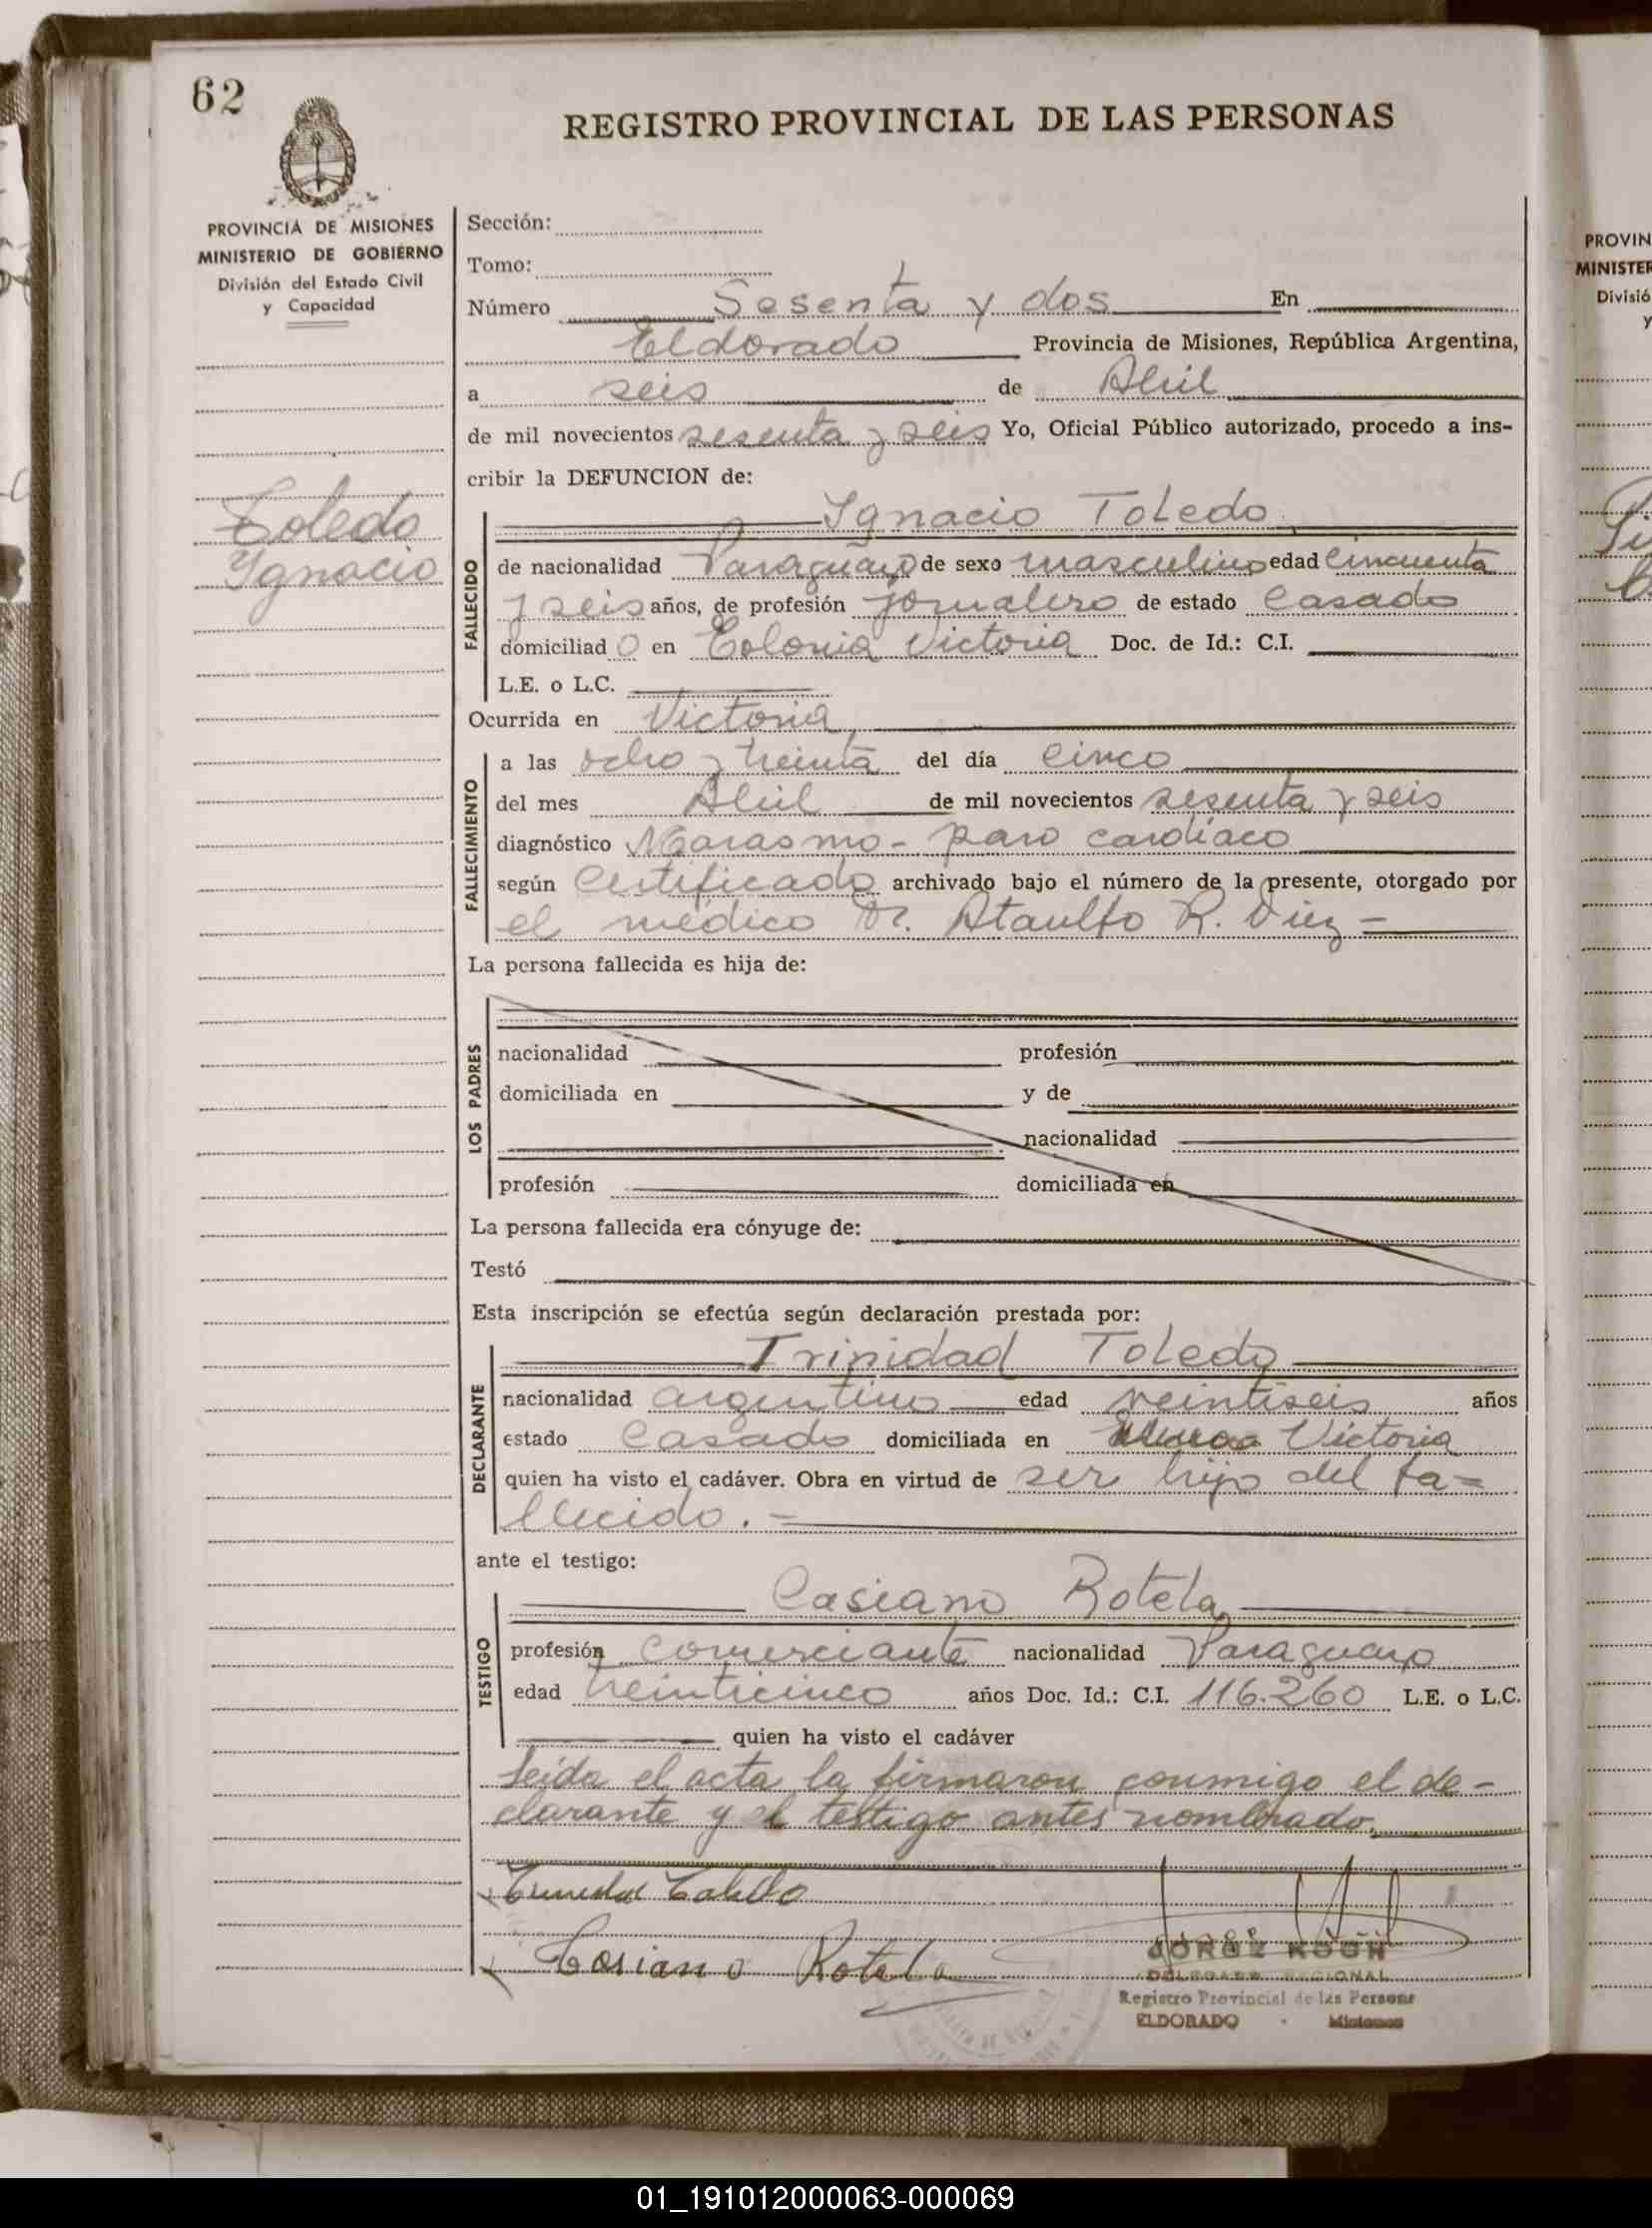 62
REGISTRO PROVINCIAL DE LAS PERSONAS
PROVINCIA DE MISIONES
MINISTERIO DE GOBIERNO
División del Estado Civil
y Capacidad
Toledo
Ignacio
Sección:
Tomo:
Número Sesenta y dos En
Eldorado Provincia de Misiones, República Argentina,
a seis de Abril
de mil novecientos sesenta y seis Yo, Oficial Público autorizado, procedo a ins-
cribir la DEFUNCION de:
FALLECIDO
Ignacio Toledo
de nacionalidad Paraguayo de sexo masculino edad cincuenta
y seis años, de profesión jornalero de estado casado
domiciliad o en Colonia Victoria Doc. de Id.: C.I.
L.E. o L.C.
Ocurrida en Victoria
FALLECIMIENTO
a las ocho y treinta del día cinco
del mes Abril de mil novecientos sesenta y seis
diagnóstico Marasmo - paro cardíaco
según Certificado archivado bajo el número de la presente, otorgado por
el médico Dr. Ataulfo R. Diez -
La persona fallecida es hija de:
LOS PADRES
nacionalidad profesión
domiciliada en y de
nacionalidad
profesión domiciliada en
La persona fallecida era cónyuge de:
Testó
Esta inscripción se efectúa según declaración prestada por:
DECLARANTE
Trinidad Toledo
nacionalidad argentino edad veintiseis años
estado Casado domiciliada en Victoria
quien ha visto el cadáver. Obra en virtud de ser hijo del fa=
llecido. -
ante el testigo:
TESTIGO
Casiano Rotela
profesión comerciante nacionalidad Paraguayo
edad treinticinco años Doc. Id.: C.I. 116.260 L.E. o L.C.
quien ha visto el cadáver
Leída el acta la firmaron conmigo el de-
clarante y el testigo antes nombrado.
Casiano Rotela
JORGE KOCH
DELEGADO REGIONAL
Registro Provincial de las Personas
ELDORADO - Misiones
PROVIN
MINISTER
Divisió
y
01_191012000063-000069